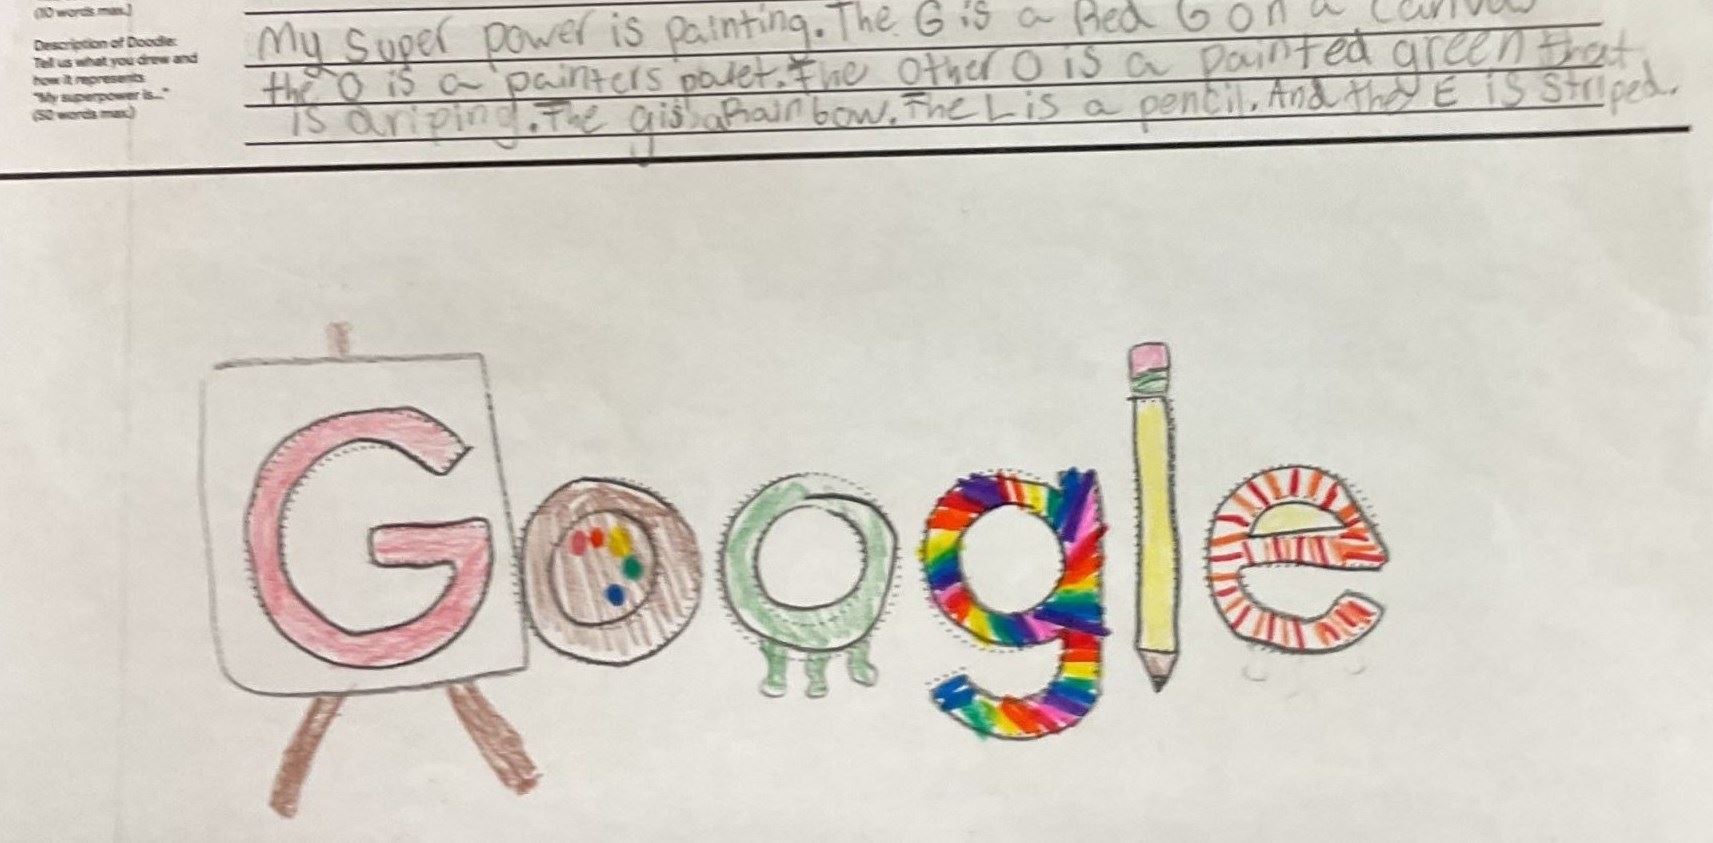 (10 words max.)
Description of Doodle:
Tell us what you drew and
how it represents
"My superpower is..."
(50 words max.)
My Super power is painting. The G is a Red G on a Canvas
the O is a painters palet. The other O is a painted green that
is driping. The g is a Rainbow. The L is a pencil. And the E is Striped.
Google